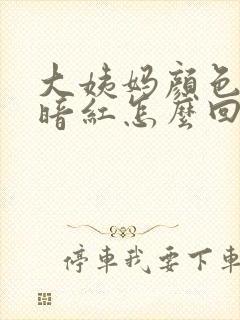 大姨妈顏色
暗紅怎麼回
停車我要下車